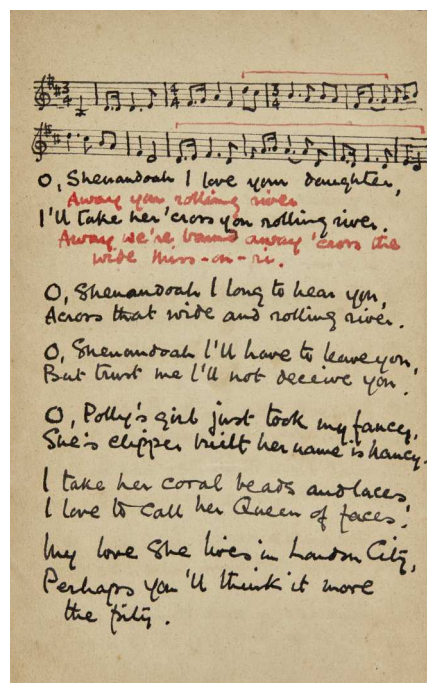 O, Shenandoah I love your daughter,
Away you rolling river
I'll take her 'cross yon rolling river.
Away we're bound away 'cross the
wide Miss-ou-ri.
O, Shenandoah I long to hear you,
Across that wide and rolling river.
O, Shenandoah I'll have to leave you,
But trust me I'll not deceive you.
O, Polly's girl just took my fancy,
She's clipper built her name is Nancy.
I take her coral beads and laces,
I love to call her Queen of faces.
My love she lives in London City,
Perhaps you'll think it more
the pity.